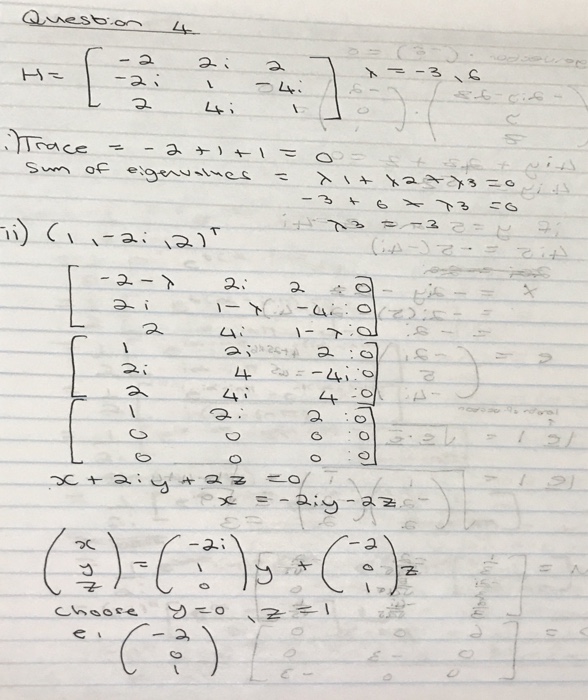 Question 4
H = [ -2 2i 2
-2i 1 -4i
2 4i 1 ] λ = -3, 6
i) Trace = -2 + 1 + 1 = 0
Sum of eigenvalues = λ1 + λ2 + λ3 = 0
-3 + 6 + λ3 = 0
λ3 = -3
ii) (1, -2i, 2)ᵀ
[ -2-λ 2i 2 : 0
2i 1-λ -4i : 0
2 4i 1-λ : 0 ]
[ 1 2i 2 : 0
2i 4 -4i : 0
2 4i 4 : 0 ]
[ 1 2i 2 : 0
0 0 0 : 0
0 0 0 : 0 ]
x + 2iy + 2z = 0
x = -2iy - 2z
( x y z ) = ( -2i 1 0 ) y + ( -2 0 1 ) z
choose y = 0, z = 1
e1 ( -2 0 1 )